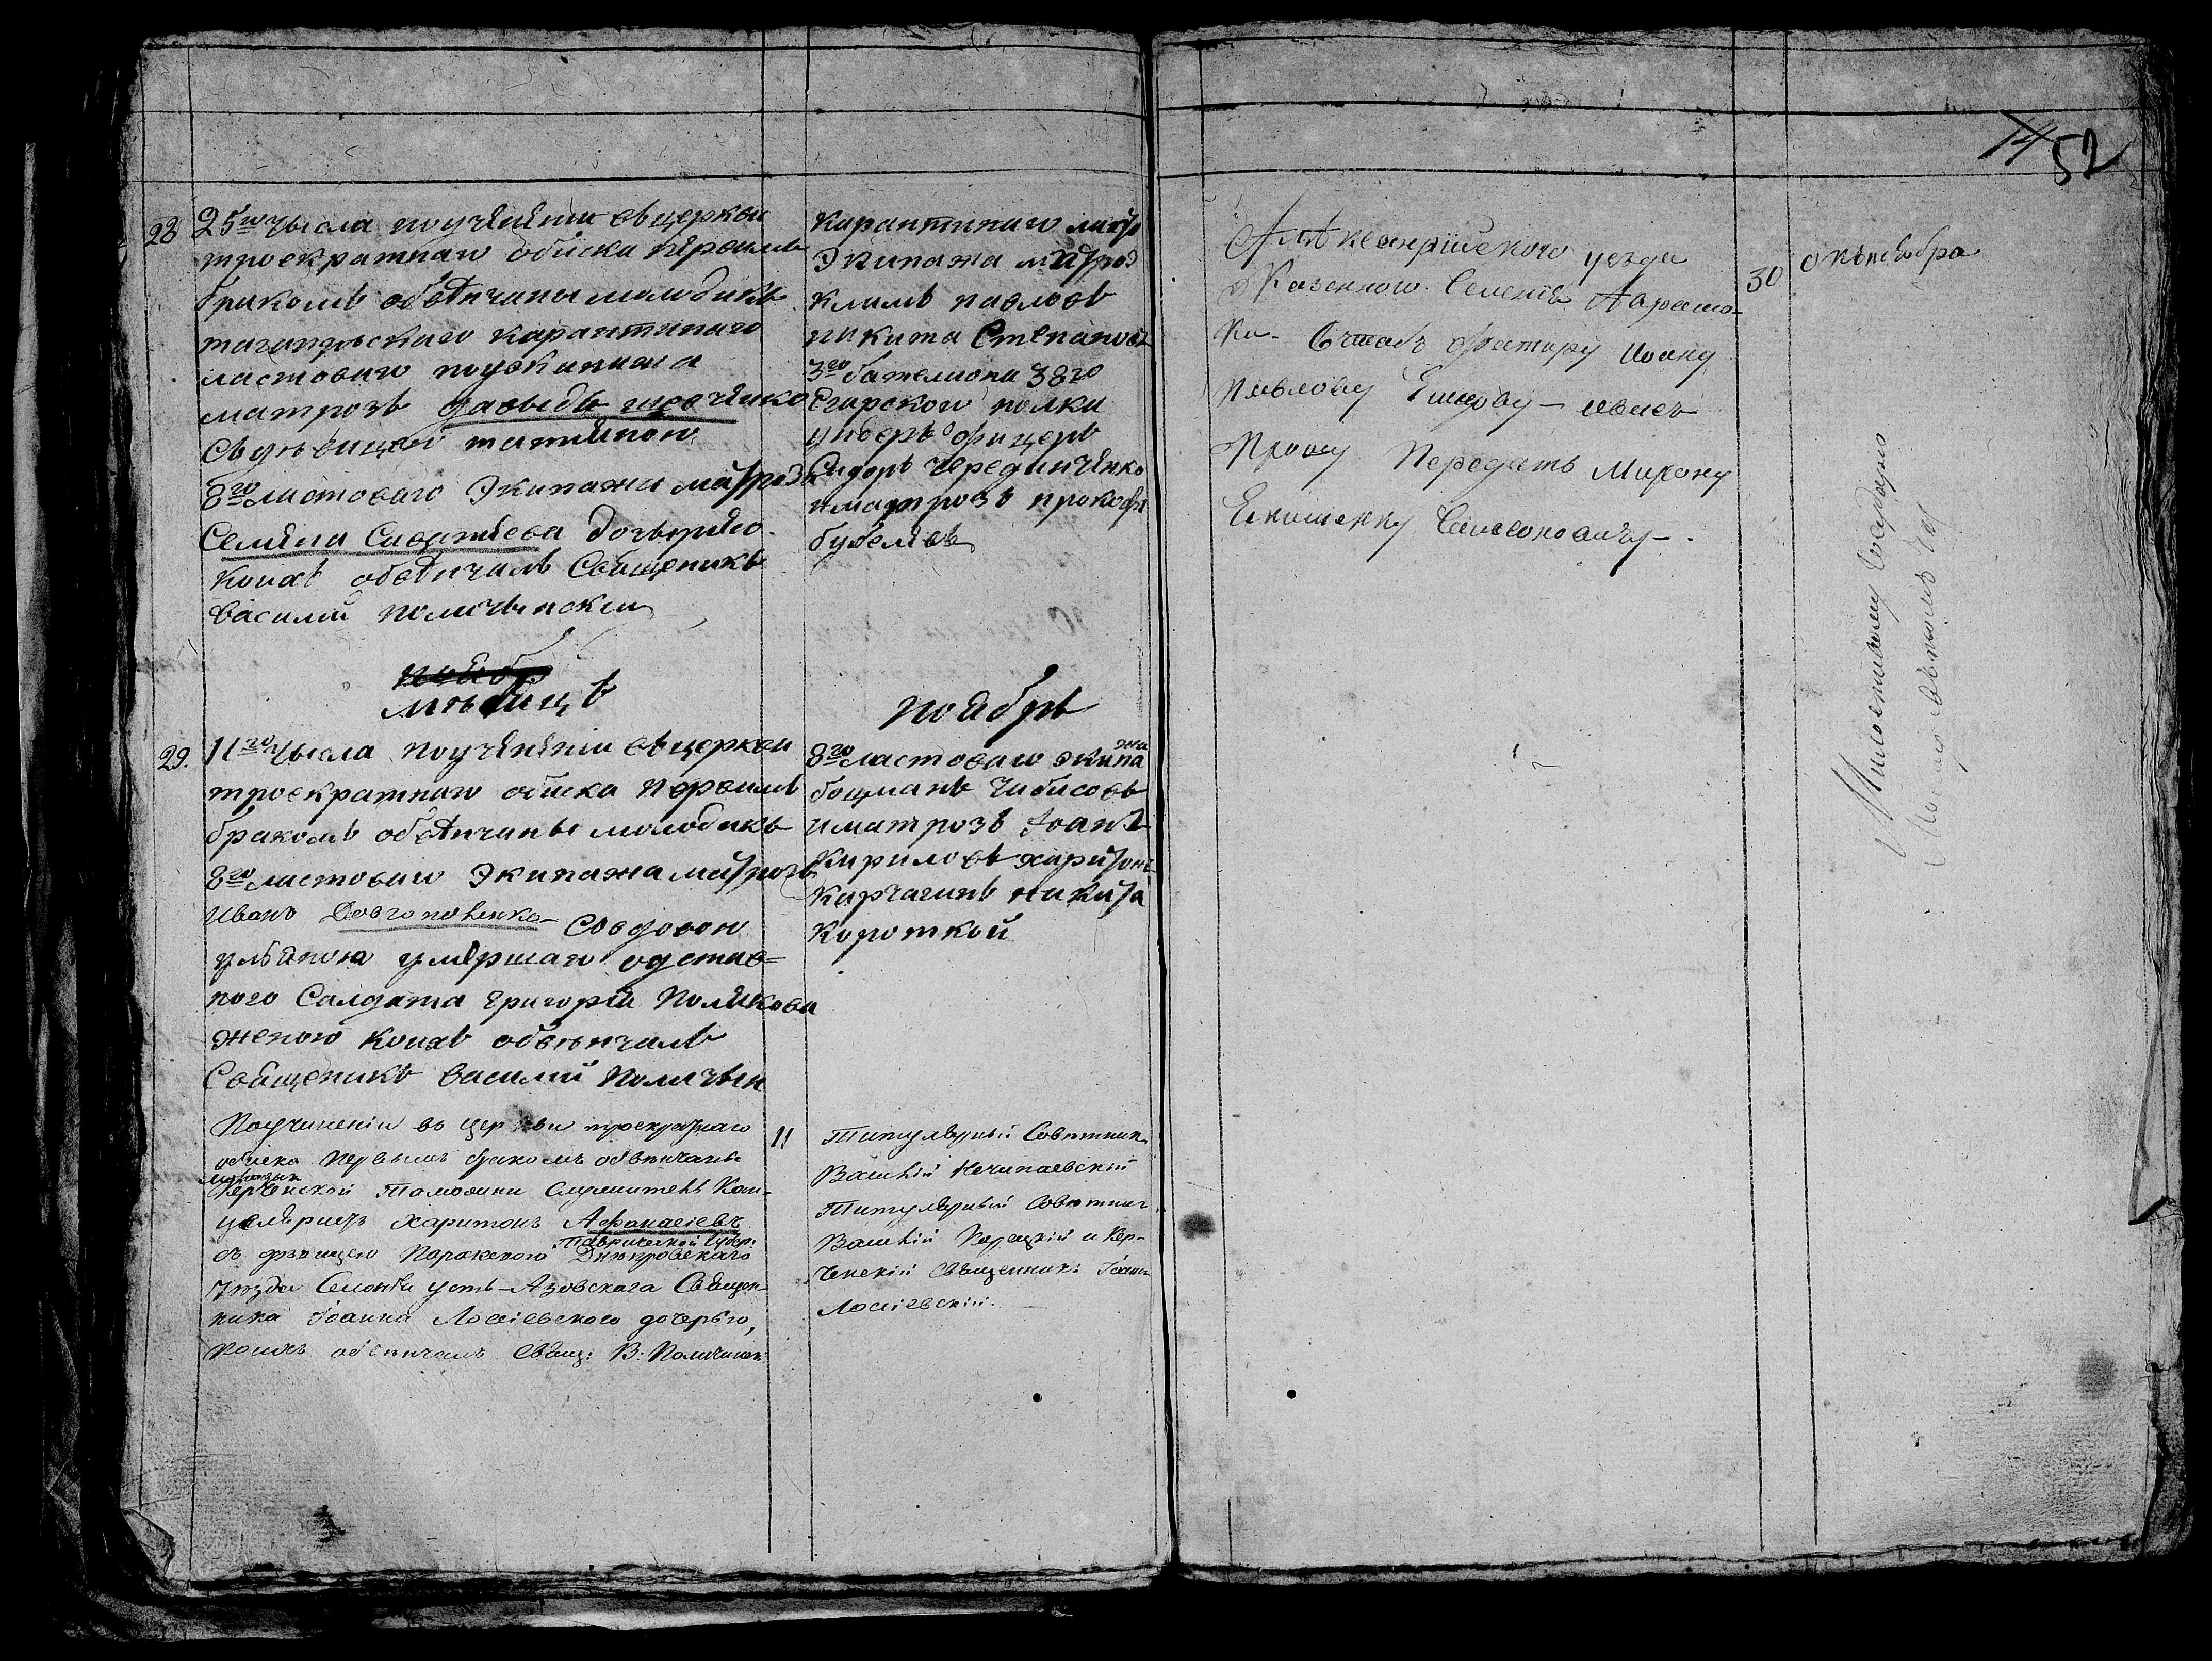 28
25го чысла поучинѣнии въ церкви
троекратнаго обиска первимъ
бракомъ обвѣнчаны молодикъ
таганрогскаго карантинаго
ластоваго полуэкипажа
матрозъ давыдъ шевченко
сдѣвицею татияною
8го ластоваго Экипажа матроза
Семѣна Саватѣева дочерѣю
коихъ обвѣнчалъ Священикъ
василий поличынский
карантинаго ласто
Экипажа матроз
климъ павловъ
никита Степановъ
3го баталиона 38го
Егарского полка
ундеръ офицеръ
Сидоръ чередниченко
и матрозъ прокофи
бубелевъ
ноябр
мѣсяцъ
ноябрь
29.
11го чысла поучинѣнии въ церкви
троекратнаго обиска первимъ
бракомъ обвѣнчаны молодикъ
8го ластоваго Экипажа матрозъ
Иванъ Довгопоненко совдовою
ульяною умѣршаго одстав=
ного Салдата григория Полякова
женою коихъ обвѣнчалъ
Священикъ василий Поличын
8го ластоваго экипа
жа
боцманъ Чибисовъ
и матрозъ Іоанъ
Кириловъ харитонъ
Карчагинъ никита
Короткой
Поучиненіи въ церкви троекратнаго
обиска первымъ бракомъ обвѣнчаны
молодикъ
Керченской Таможни служитель Кан-
целяристъ Харитонъ Афанасіевъ
съ дѣвицею Параскевою Таврической Губер:
Днѣпровскаго
уѣзда Селенія Усть-Азовскага Священ-
ника Іоанна Лосіевского дочерью,
коихъ обвенчалъ Свящ: В: Поличинск:
11
Титулярный Советник
Василій Нечипаевский
Титулярный Советник
Василій и Кер-
ченскій Священникъ Іоанн
Лосіевскій.
14 52
Александрійского уезда
Казенного Селенія
ка- Іоану
Павлову - ивасъ
Прошу Передать Мирону
30
октября
Милостивому Государю